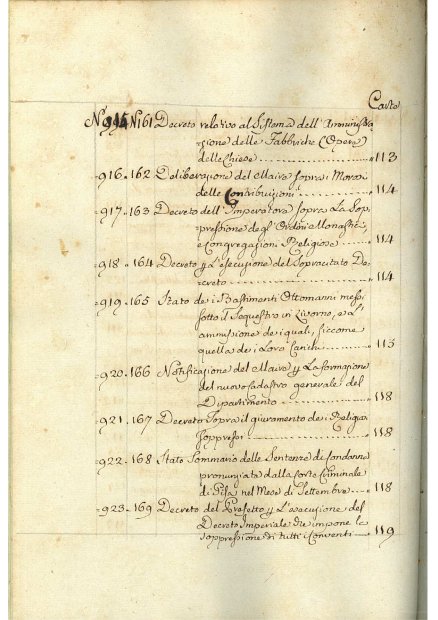 Carte
Nº 915 N161 Decreto relativo al Sistema dell'Amministra
zione delle Fabbriche (Opere)
delle Chiese ............ 113
= 916 = 162 Deliberazione del Maire sopra i Morosi
delle Contribuzioni ............ 114
= 917 = 163 Decreto dell'Imperatore sopra La Sop-
pressione degl'Ordini Monastici,
e Congregazioni Religiose ...... 114
= 918 = 164 Decreto p L'esecuzione del Sopracitato De-
creto ............ 114
= 919 = 165 Stato dei Bastimenti Ottomanni messi
sotto il Sequestro in Livorno, e l'
ammissione dei quali, siccome
quella dei Loro Carichi ...... 115
= 920 = 166 Notificazione del Maire p La formazione
del nuovo Cadastro generale del
Dipartimento ............ 118
= 921 = 167 Decreto Sopra il giuramento dei Religiosi
soppressi ............ 118
= 922 = 168 Stato Sommario delle Sentenze di Condanne
pronunziate dalla Corte Criminale
di Pisa nel Mese di Settembre ... 118
= 923 = 169 Decreto del Prefetto p L'esecuzione del
Decreto Imperiale che impone la
soppressione di tutti i Conventi ... 119